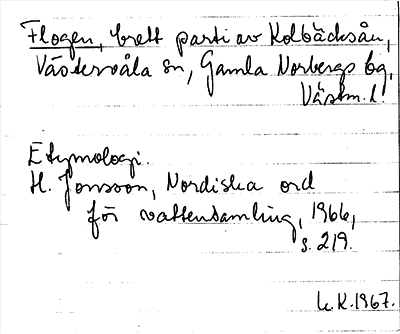 Flogen, brett parti av Kolbäcksån,
Västervåla sn, Gamla Norbergs bg,
Västm. l.
Etymologi.
H. Jonsson, Nordiska ord
för vattensamling, 1966,
s. 219.
L.K. 1967.